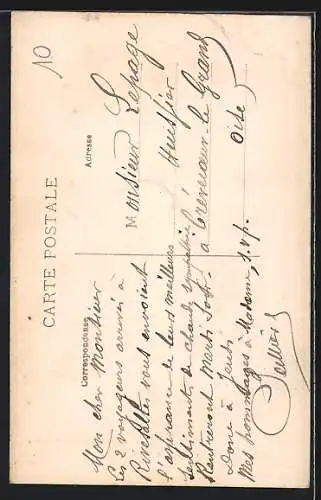 10
CARTE POSTALE
Correspondance
Adresse
Mon cher Monsieur
Les 2 voyageurs arrivés à
Rivesaltes vous envoient
l'assurance de leurs meilleurs
sentiments de chaude sympathie
Rentreront Mardi soir.
Donc à Jeudi
Mes hommages à Madame, s.v.p.
Monsieur Lepage
Huissier
à Crèvecœur-le-Grand
Oise